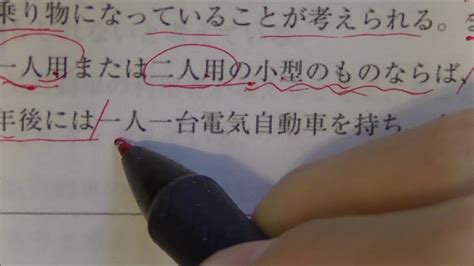 乗り物になっていることが考えられる。
一人用または二人用の小型のものならば、
年後には一人一台電気自動車を持ち、